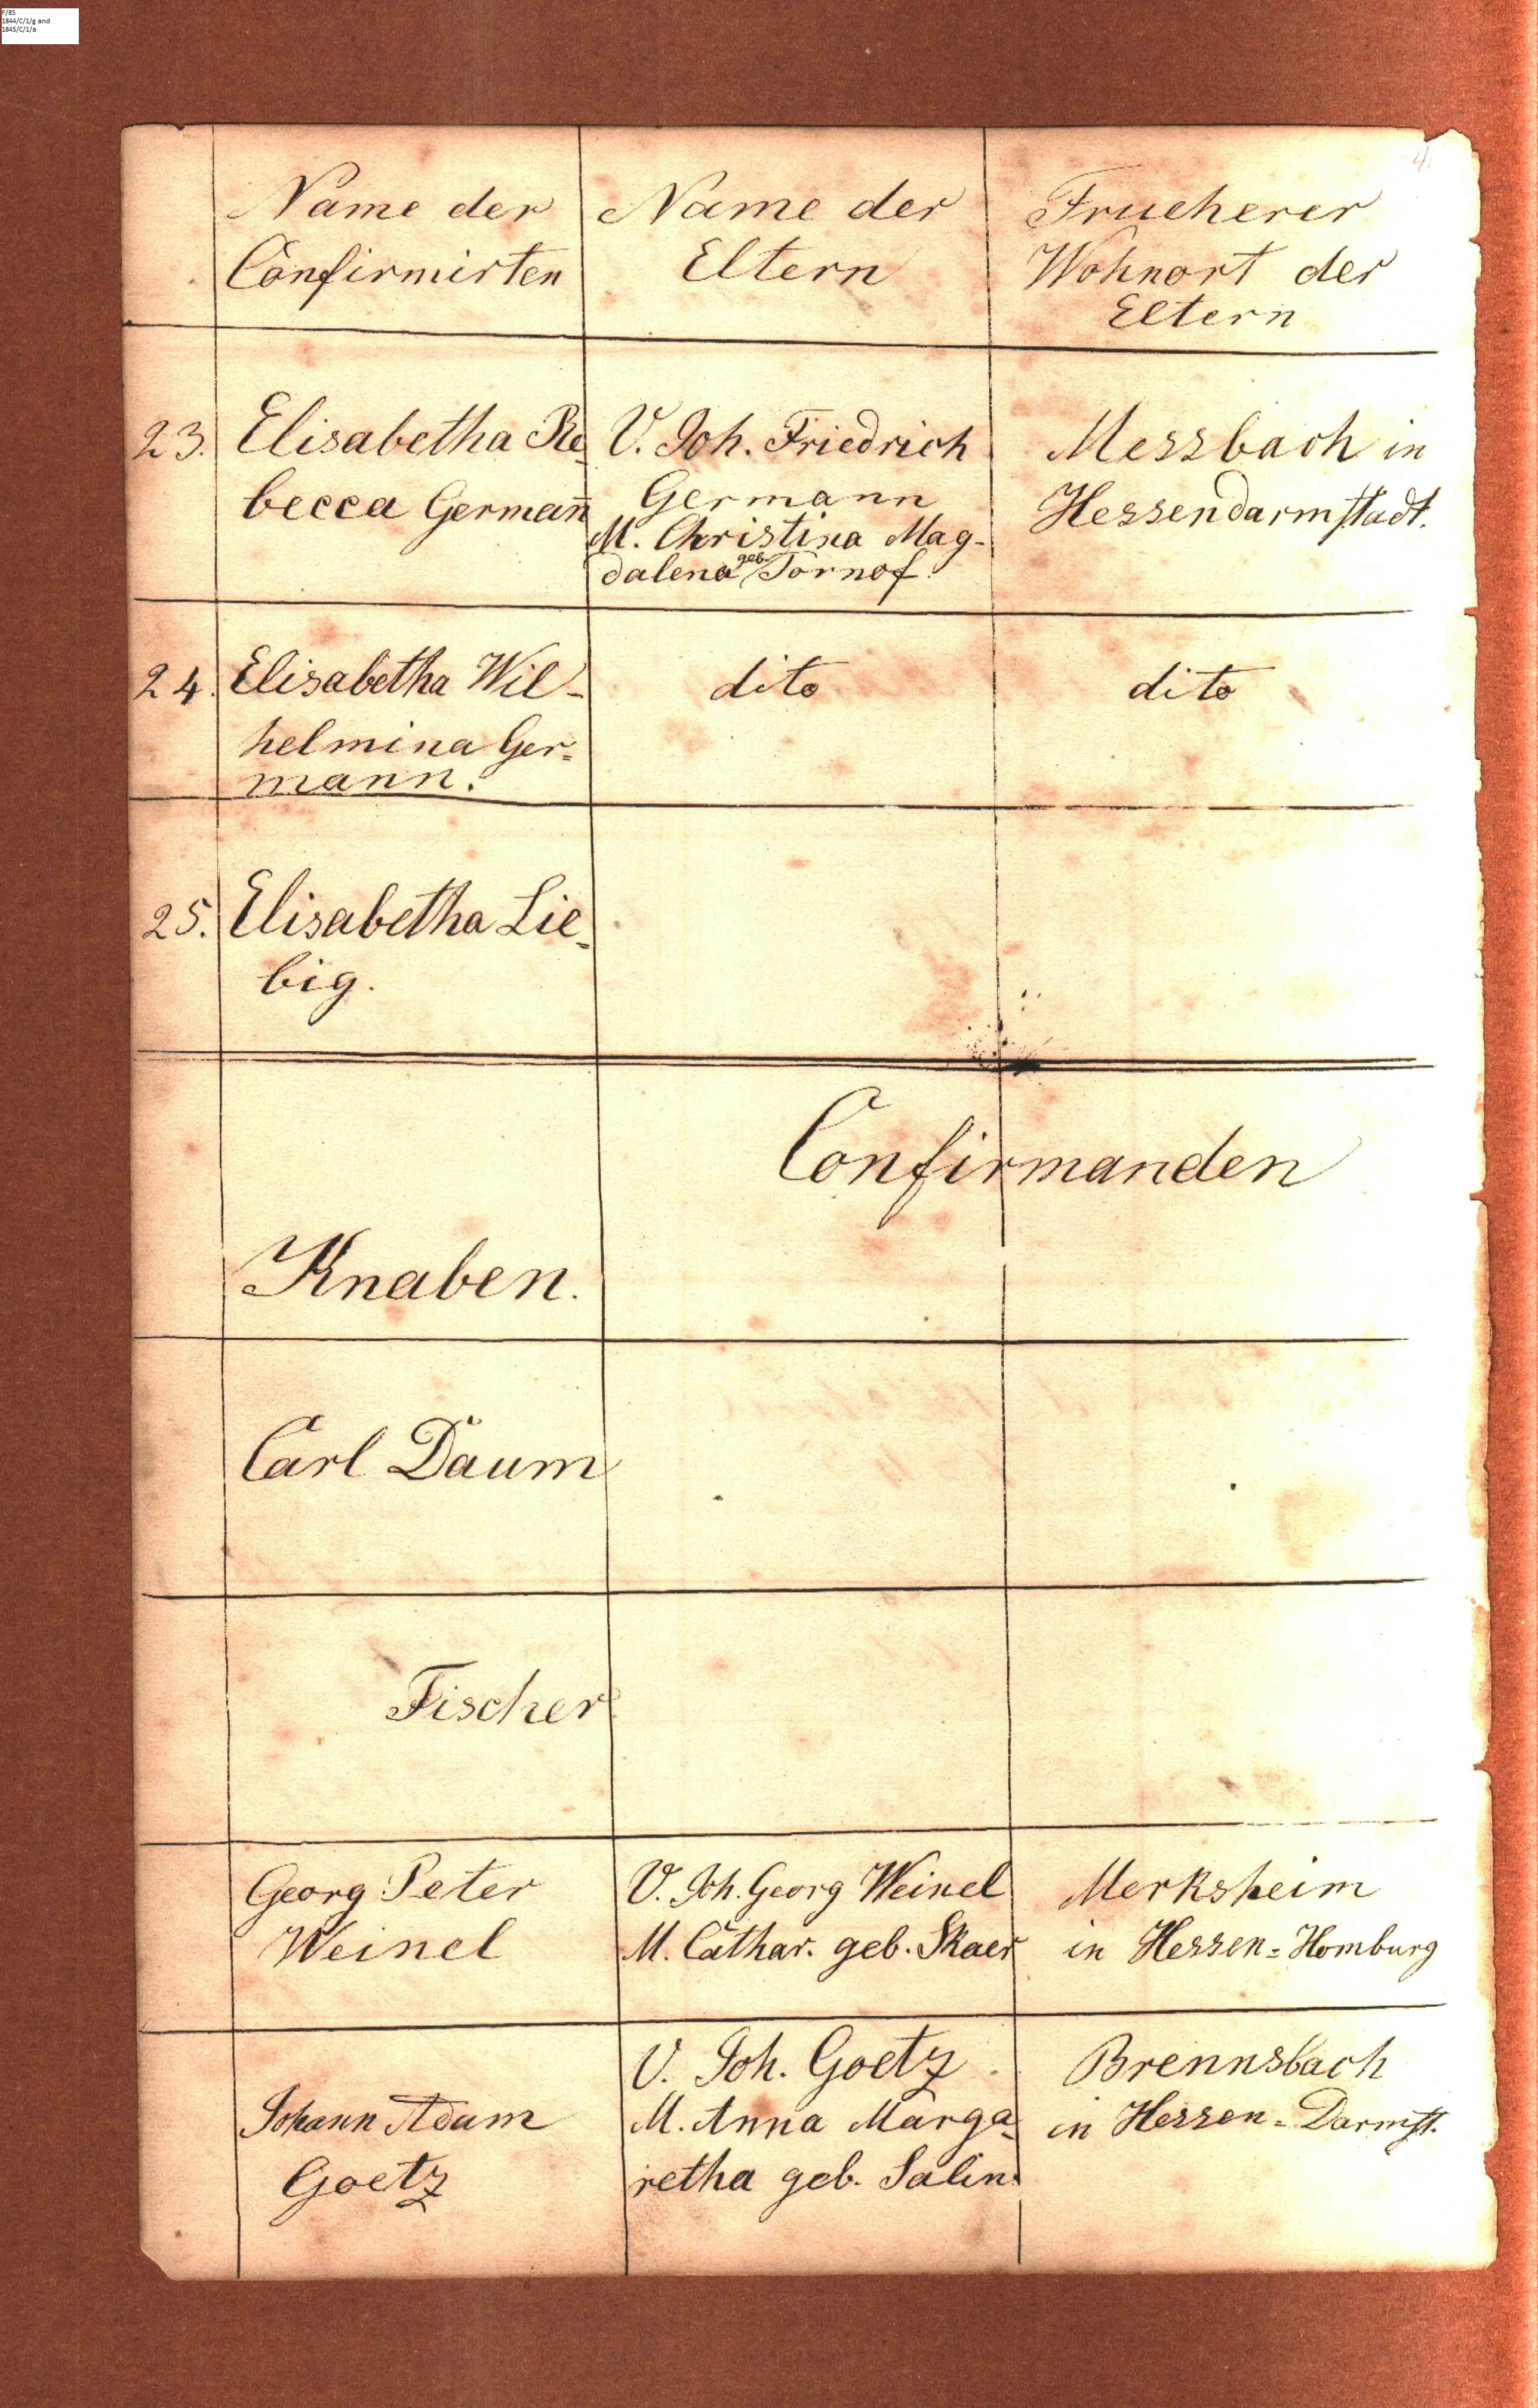 F/85
1844/C/1/g and
1845/C/1/a
4.
Name der Confirmirten
Name der Eltern
Frueherer Wohnort der Eltern
23.
Elisabetha Re-
becca Germañ
V. Joh. Friedrich
Germann
M. Christina Mag-
dalena geb. Tornof.
Messbach in
Hessendarmstadt.
24.
Elisabetha Wil-
helmina Ger=
mann.
dito
dito
25.
Elisabetha Lie-
big.
Confirmanden
Knaben.
Carl Daum
Fischer
Georg Peter
Weinel
V. Joh. Georg Weinel
M. Cathar. geb. Skaer
Merksheim
in Hessen=Homburg
Johann Adam
Goetz
V. Joh. Goetz
M. Anna Marga-
retha geb. Salin.
Brennsbach
in Hessen=Darmst.